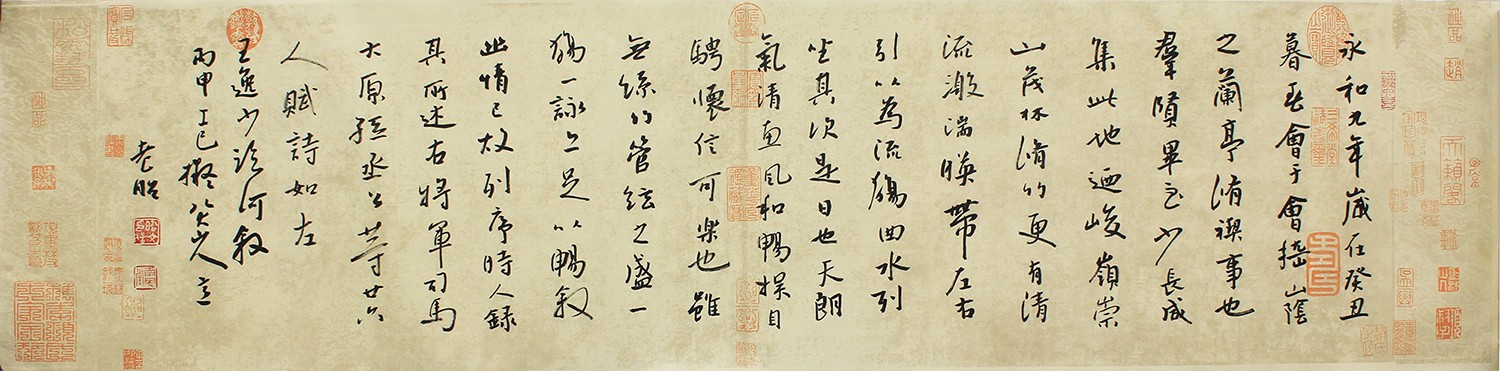 永和九年歲在癸丑
暮春會于會稽山陰
之蘭亭脩禊事也
羣賢畢至少長咸
集此地迺峻嶺崇
山茂林脩竹更有清
流激湍暎帶左右
引以為流觴曲水列
坐其次是日也天朗
氣清惠風和暢娛目
騁懷信可樂也雖
無絲竹管絃之盛一
觴一詠亦足以暢敘
此情已故列序時人錄
其所述右將軍司馬
太原孫丞公等廿六
人賦詩如左
王逸少臨河敘
丙申